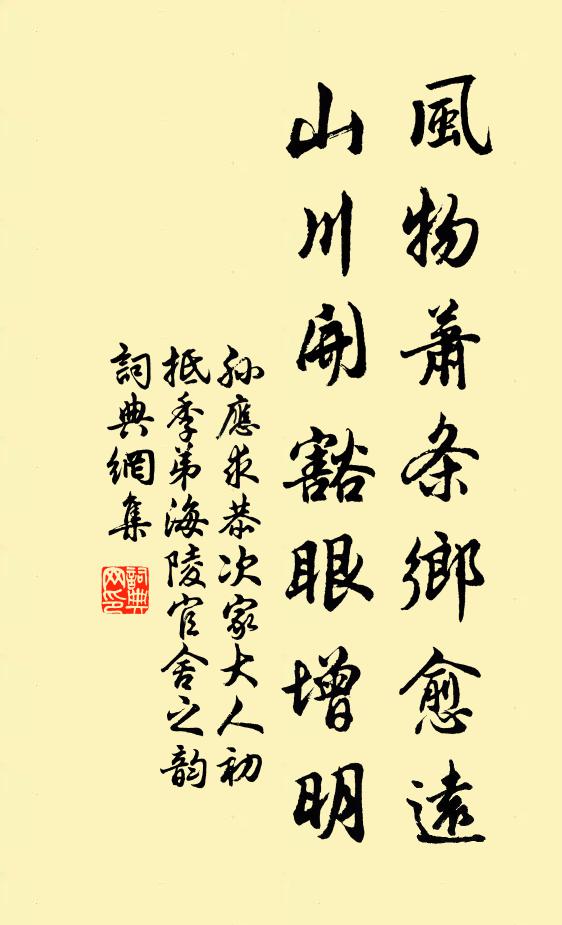 風物蕭条鄉愈遠
山川開豁眼增明
孫應求恭次家大人初
抵季弟海陵官舍之韵
詞典網集
詞典
网印